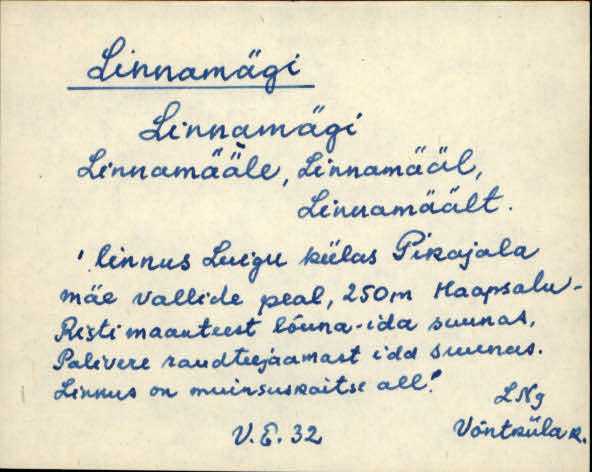 Linnamägi
Linnamägi
Linnamä̀äle, Linnamääl,
Linnamäält.
'linnus Luigu külas Pikajala
mäe vallide peal, 250m Haapsalu-
Risti maanteest lõuna-ida suunas,
Palivere raudteejaamast ida suunas.
Linnus on muinsuskaitse all!
LNg
V.E. 32
Võntküla k.